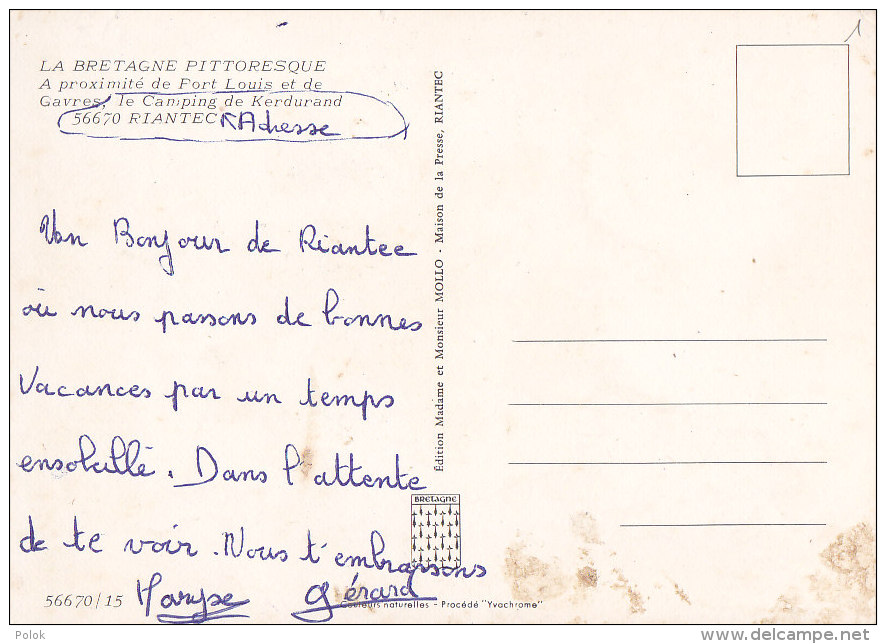 1
LA BRETAGNE PITTORESQUE
A proximité de Port Louis et de
Gavres, le Camping de Kerdurand
56670 RIANTEC Adresse
Un Bonjour de Riantec
où nous passons de bonnes
Vacances par un temps
ensoleillé. Dans l'attente
de te voir. Nous t'embrassons
Maryse Gérard
56670/15
Édition Madame et Monsieur MOLLO - Maison de la Presse, RIANTEC
BRETAGNE
Couleurs naturelles - Procédé "Yvachrome"
Polok
delcampe.net